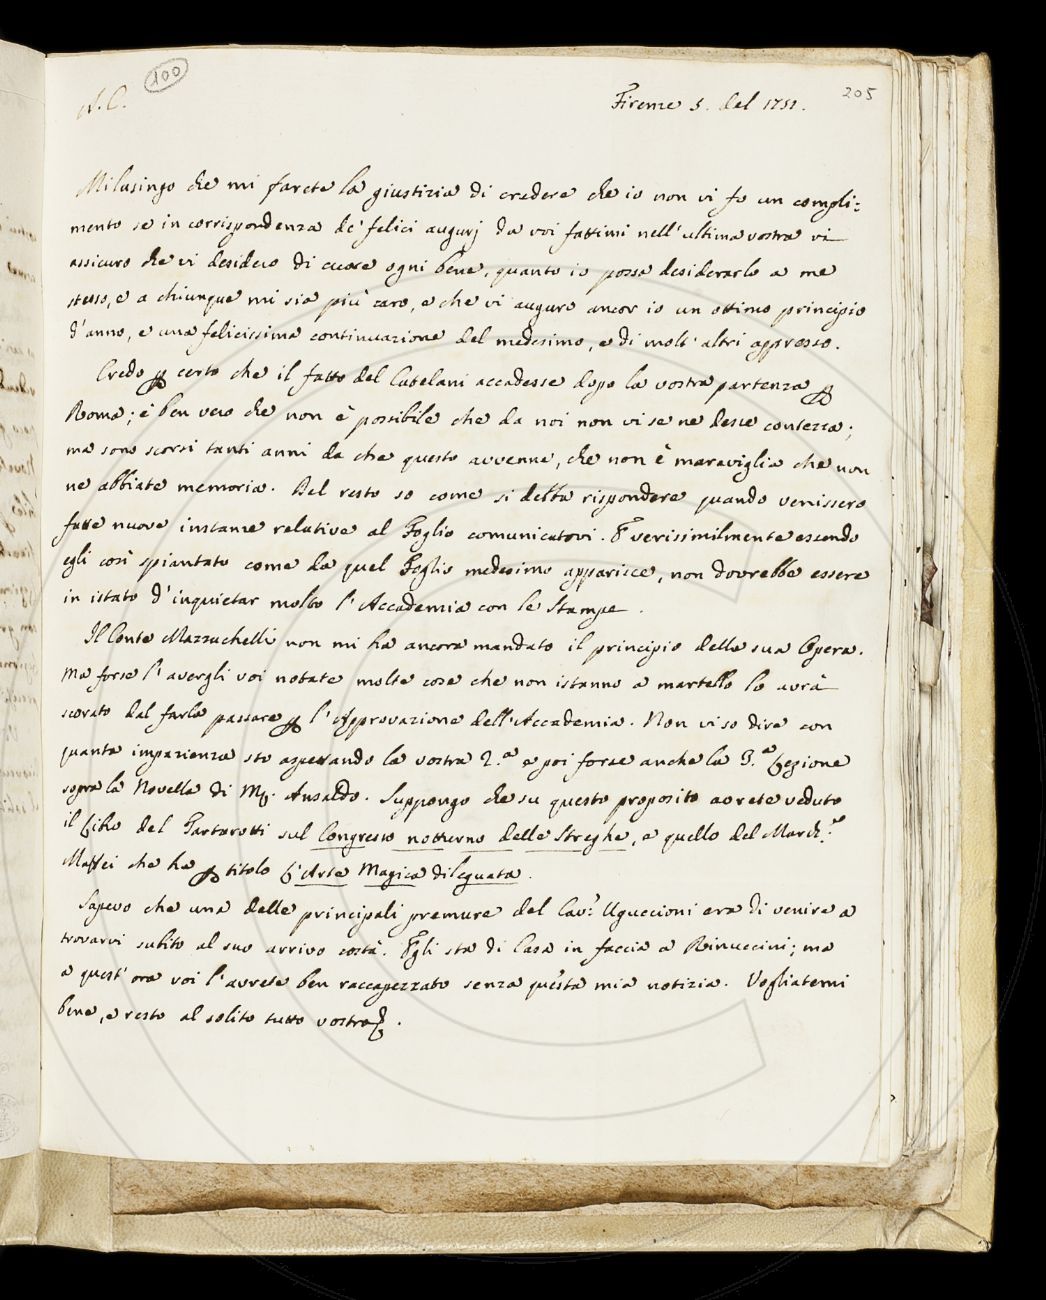 N. C.
100
Firenze 5. del 1751.
205
Mi lusingo che mi farete la giustizia di credere che io non vi fo un compli=
mento se in corrispondenza de' felici augurj da voi fattimi nell'ultima vostra vi
assicuro che vi desidero di cuore ogni bene, quanto io possa desiderarlo a me
stesso, e a chiunque mi sia più caro, e che vi auguro ancor io un ottimo principio
d'anno, e una felicissima continuazione del medesimo, e di molt'altri appresso.
Credo p certo che il fatto del Catelani accadesse dopo la vostra partenza p
Roma; è ben vero che non è possibile che da noi non vi se ne desse contezza;
ma sono scorsi tanti anni da che questo avvenne, che non è maraviglia che non
ne abbiate memoria. Del resto so come si debba rispondere quando venissero
fatte nuove instanze relative al Foglio comunicatovi. E verisimilmente essendo
egli così spiantato come da quel Foglio medesimo apparisce, non dovrebbe essere
in istato d'inquietar molto l'Accademia con le Stampe.
Il Conte Mazzuchelli non mi ha ancora mandato il principio della sua Opera.
Ma forse l'avergli voi notate molte cose che non istanno a martello lo avrà
scorato dal farla passare p l'Approvazione dell'Accademia. Non vi so dire con
quanta impazienza sto aspettando la vostra 2.a e poi forse anche la 3.a Lezione
sopra la Novella di Mo. Ansaldo. Suppongo che su questo proposito avrete veduto
il Libro del Tartarotti sul Congresso notturno delle Streghe, e quello del March.e
Maffei che ha p titolo L'Arte Magica dileguata.
Sapevo che una delle principali premure del Cav.r Uguccioni era di venire a
trovarvi subito al suo arrivo costà. Egli sta di Casa in faccia a Rinuccini; ma
a quest'ora voi l'avrete ben raccapezzato senza questa mia notizia. Vogliatemi
bene, e resto al solito tutto vostro.